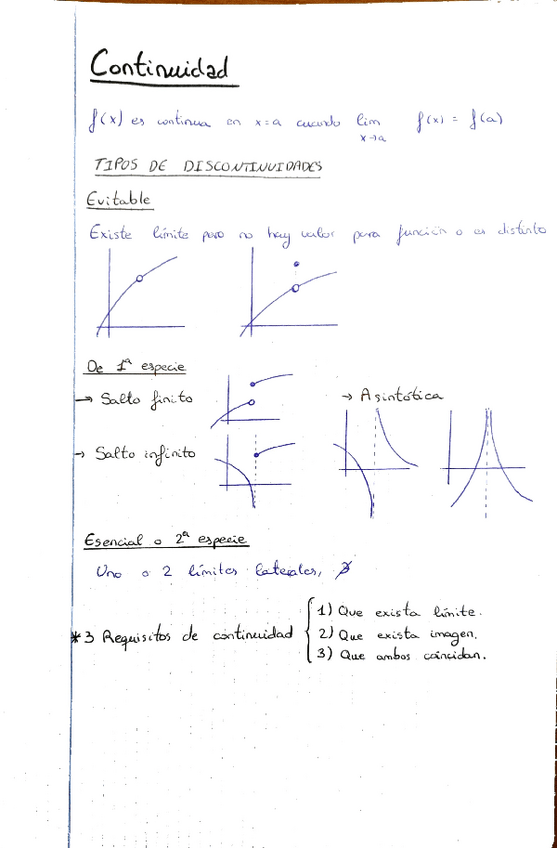 Continuidad
f(x) es continua en x=a cuando lim f(x) = f(a)
x→a
TIPOS DE DISCONTINUIDADES
Evitable
Existe límite pero no hay valor para función o es distinto
De 1ª especie
→ Salto finito
→ Asintótica
→ Salto infinito
Esencial o 2ª especie
Uno o 2 límites laterales, ∄
*3 Requisitos de continuidad
1) Que exista límite.
2) Que exista imagen.
3) Que ambos coincidan.